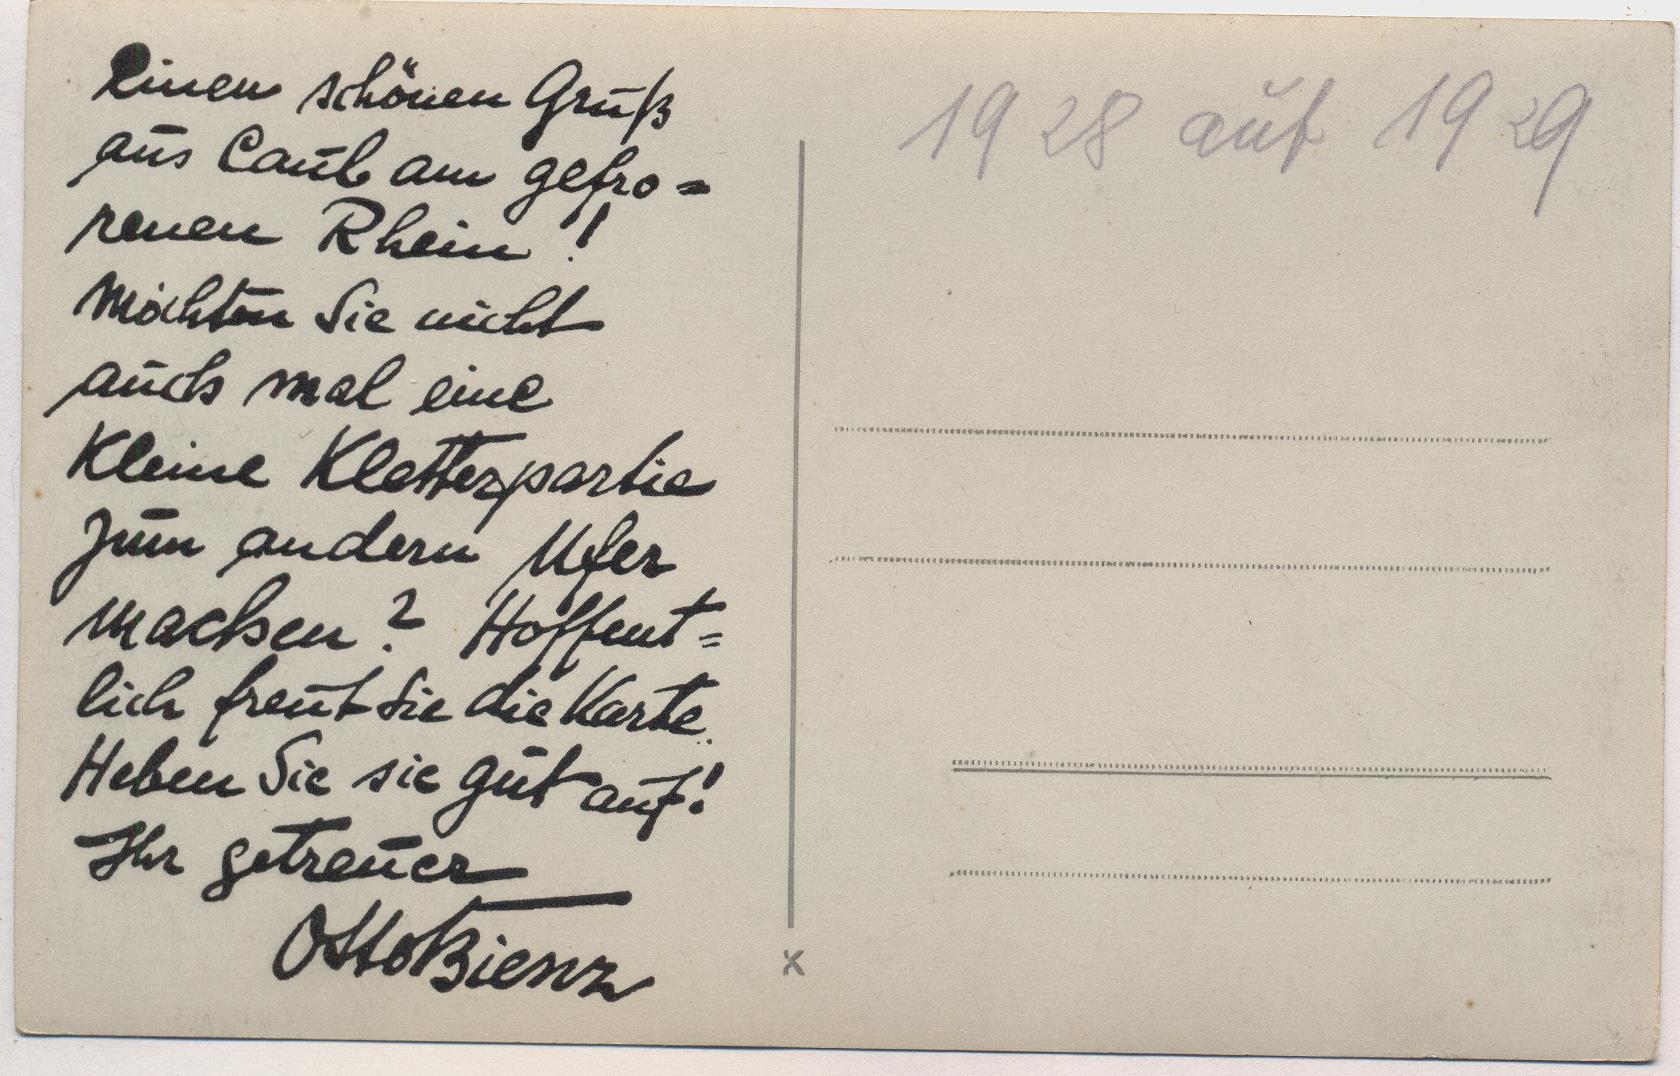 Einen schönen Gruß
aus Caub am gefro=
renen Rhein!
Möchten Sie nicht
auch mal eine
kleine Kletterpartie
zum andern Ufer
machen? Hoffent=
lich freut Sie die Karte.
Heben Sie sie gut auf!
Ihr getreuer
Otto Bienz
1928 auf 1929
x